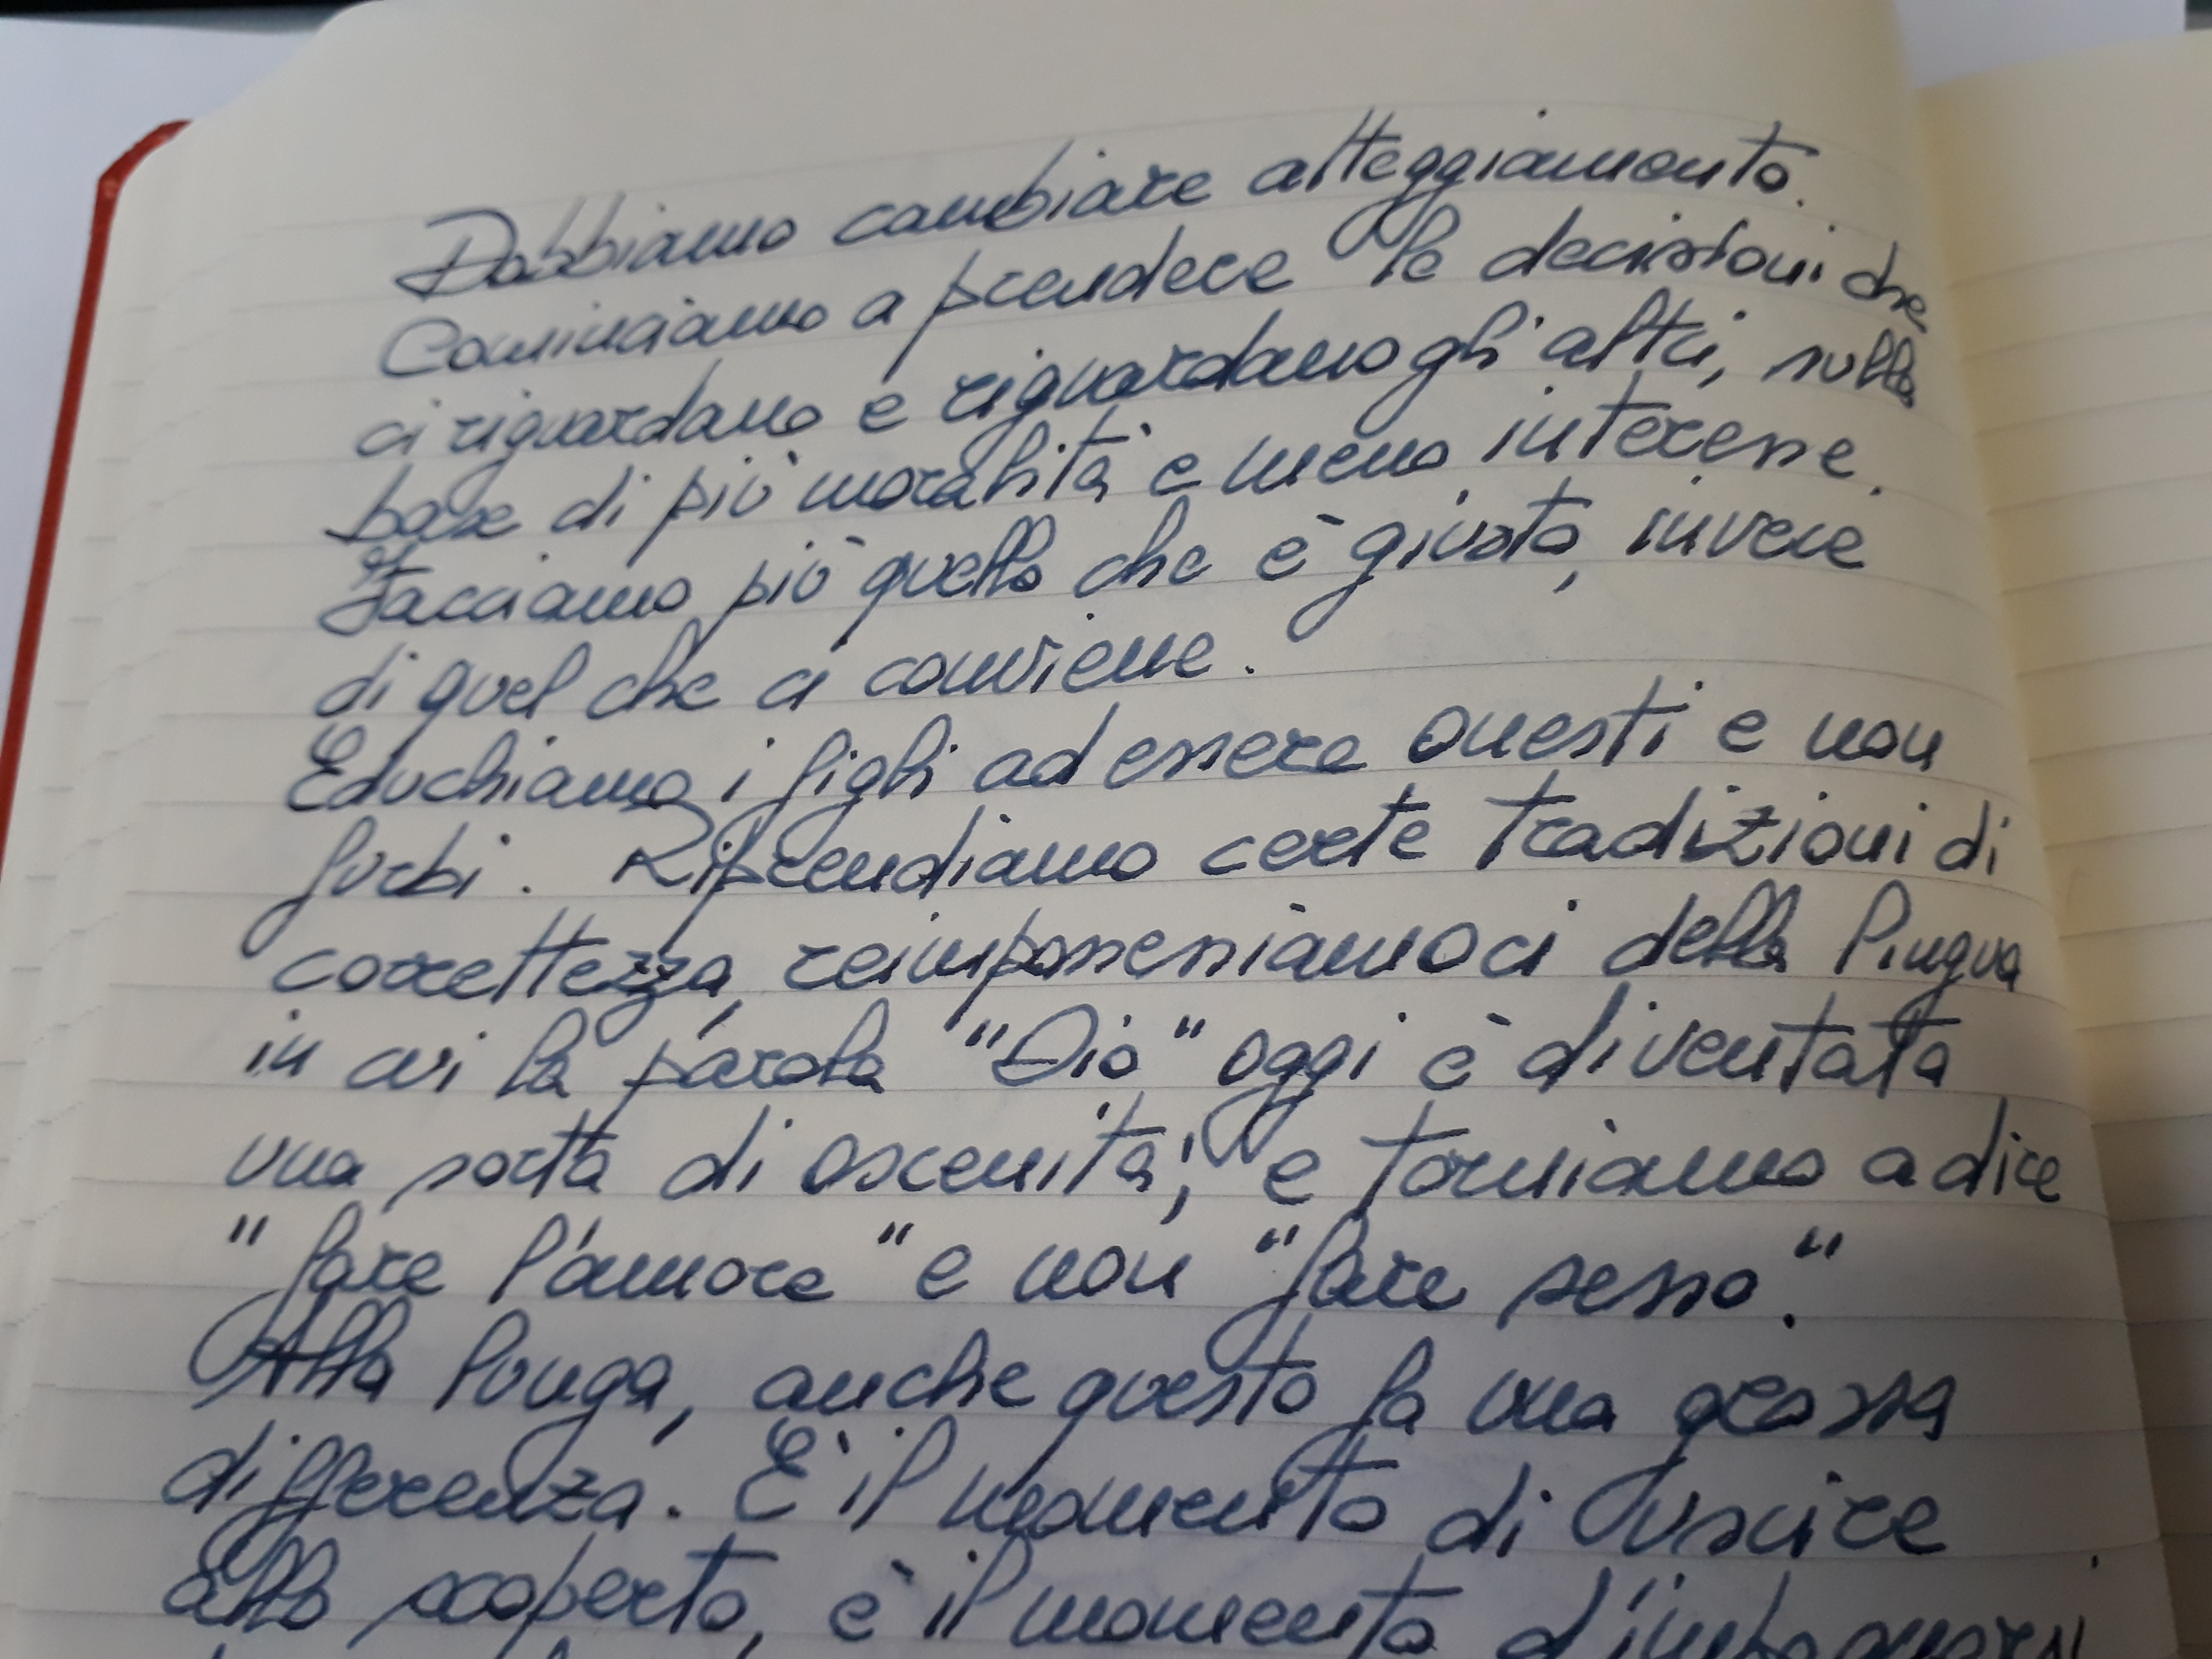 Dobbiamo cambiare atteggiamento.
Cominciamo a prendere le decisioni che
ci riguardano e riguardano gli altri, sulla
base di più moralità e meno interesse.
Facciamo più quello che è giusto, invece
di quel che ci conviene.
Educhiamo i figli ad essere onesti e non
furbi. Riprendiamo certe tradizioni di
correttezza, reimpossessiamoci della lingua
in cui la parola "Dio" oggi è diventata
una sorta di oscenità; e torniamo a dire
"fare l'amore" e non "fare sesso".
Alla lunga, anche questo fa una grossa
differenza. È il momento di uscire
allo scoperto, è il momento d'impegnarsi